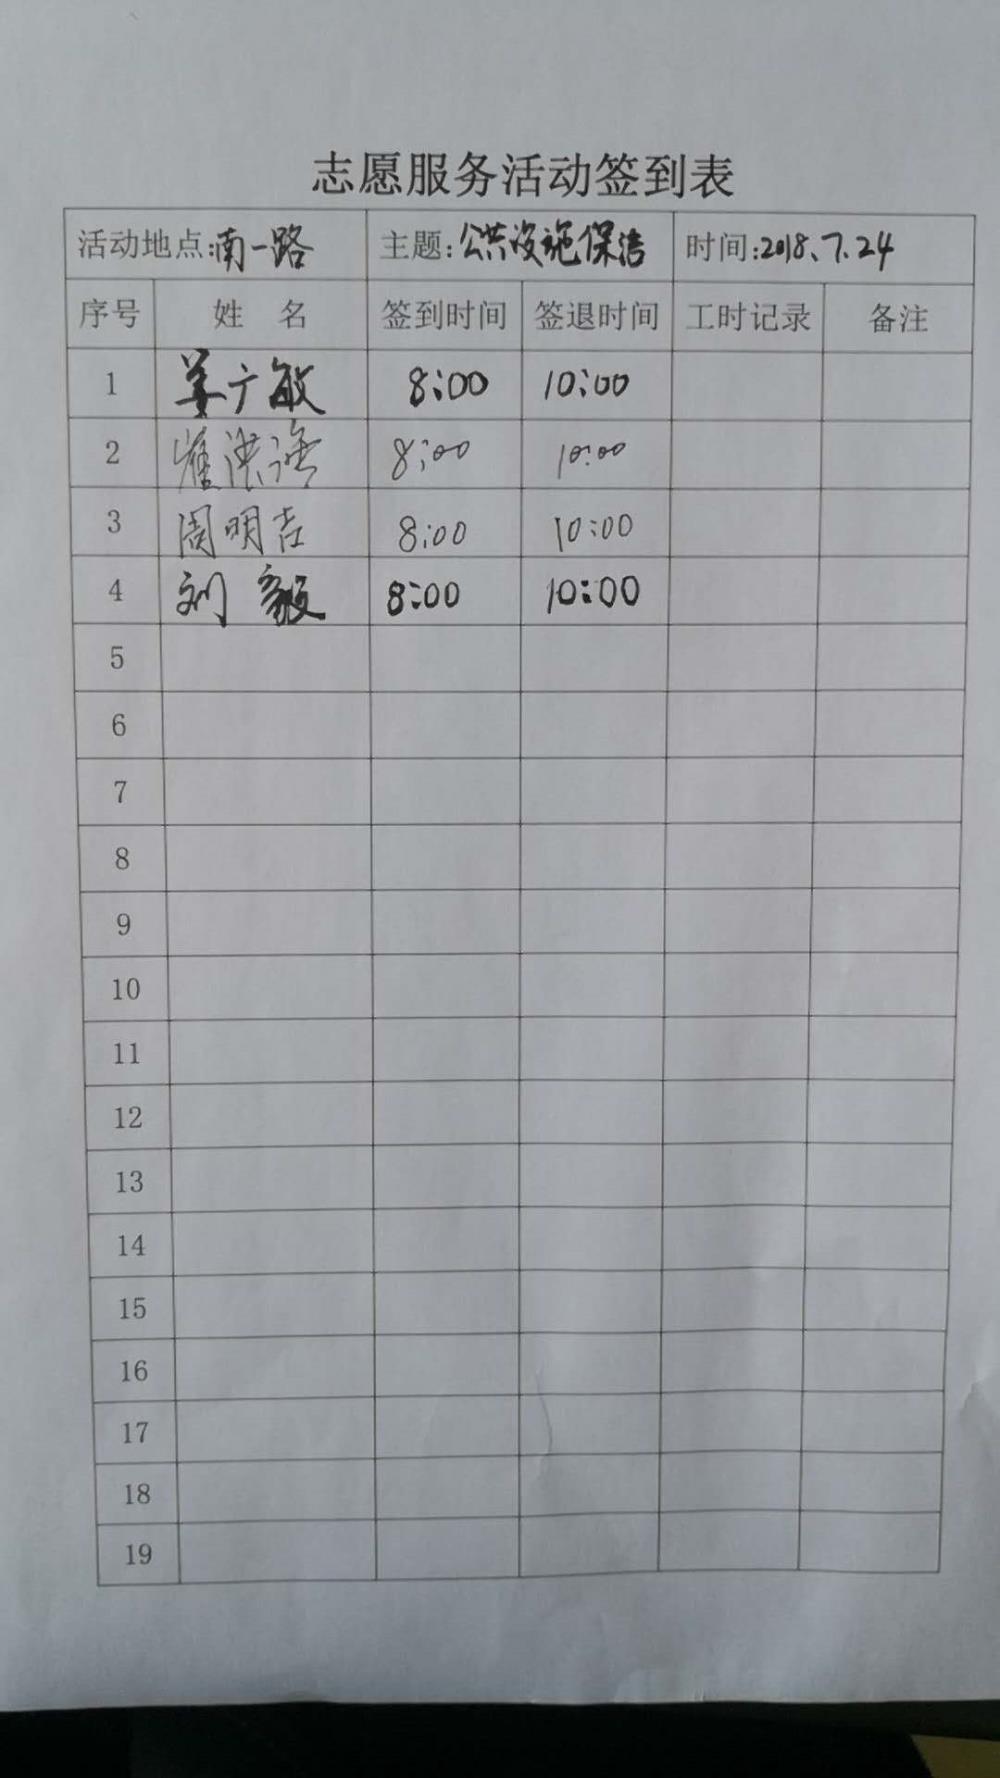 志愿服务活动签到表
活动地点:南一路 主题:公共设施保洁 时间:2018.7.24
序号 姓 名 签到时间 签退时间 工时记录 备注
1 姜广敏 8:00 10:00
2 8:00 10:00
3 周明吉 8:00 10:00
4 刘毅 8:00 10:00
5
6
7
8
9
10
11
12
13
14
15
16
17
18
19